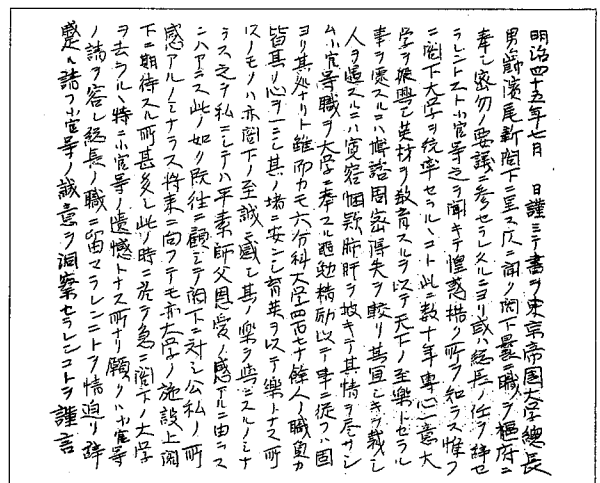 明治四十五年七月　日謹ミテ書ヲ東京帝国大学総長
男爵濱尾新閣下ニ呈ス仄ニ聞ク閣下曩ニ職ヲ枢府ニ
奉シ密勿ノ要議ニ参セラレタルニヨリ或ハ総長ノ任ヲ辞セ
ラレントスト小官等之ヲ聞キテ惶惑措ク所ヲ知ラス惟フ
ニ閣下大学ヲ統率セラルヽコト此ニ数十年専心一意大
学ヲ振興シ英材ヲ教育スルヲ以テ天下ノ至楽トセラル
事ヲ慮スルコハ博詢周密得失ヲ較リ其宜シキヲ裁シ
人ヲ遇スルニハ寛容悃款肺肝ヲ披キテ其情ヲ尽サシ
ム小官等職ヲ大学ニ奉スル匪勉精励以テ事ニ従フハ固
ヨリ其処ナリト雖而カモ六分科大学四百七十餘人ノ職員カ
皆其ノ心ヲ一ニシ其ノ堵ニ安ンシ育英ヲ以テ楽トナス所
以ノモノハ亦閣下ノ至誠ニ感シ其ノ楽ヲ偕ニスルノミナ
ラス之ヲ私ニシテハ平素師父恩愛ノ感アルニ由ラス
ンハアラス此ノ如ク既往ニ顧ミテ閣下ニ対シ公私ノ所
感アルノミナラス将来ニ向フテモ亦大学ノ施設上閣
下ニ期待スル所甚多シ此ノ時ニ於テ急ニ閣下ノ大学
ヲ去ラルヽ特ニ小官等ノ遺憾トナス所ナリ願クハ小官等
ノ請ヲ容レ総長ノ職ニ留マラレンコトヲ情迫リ辞
蹙ル請フ小官等ノ誠意ヲ洞察セラレンコトヲ謹言